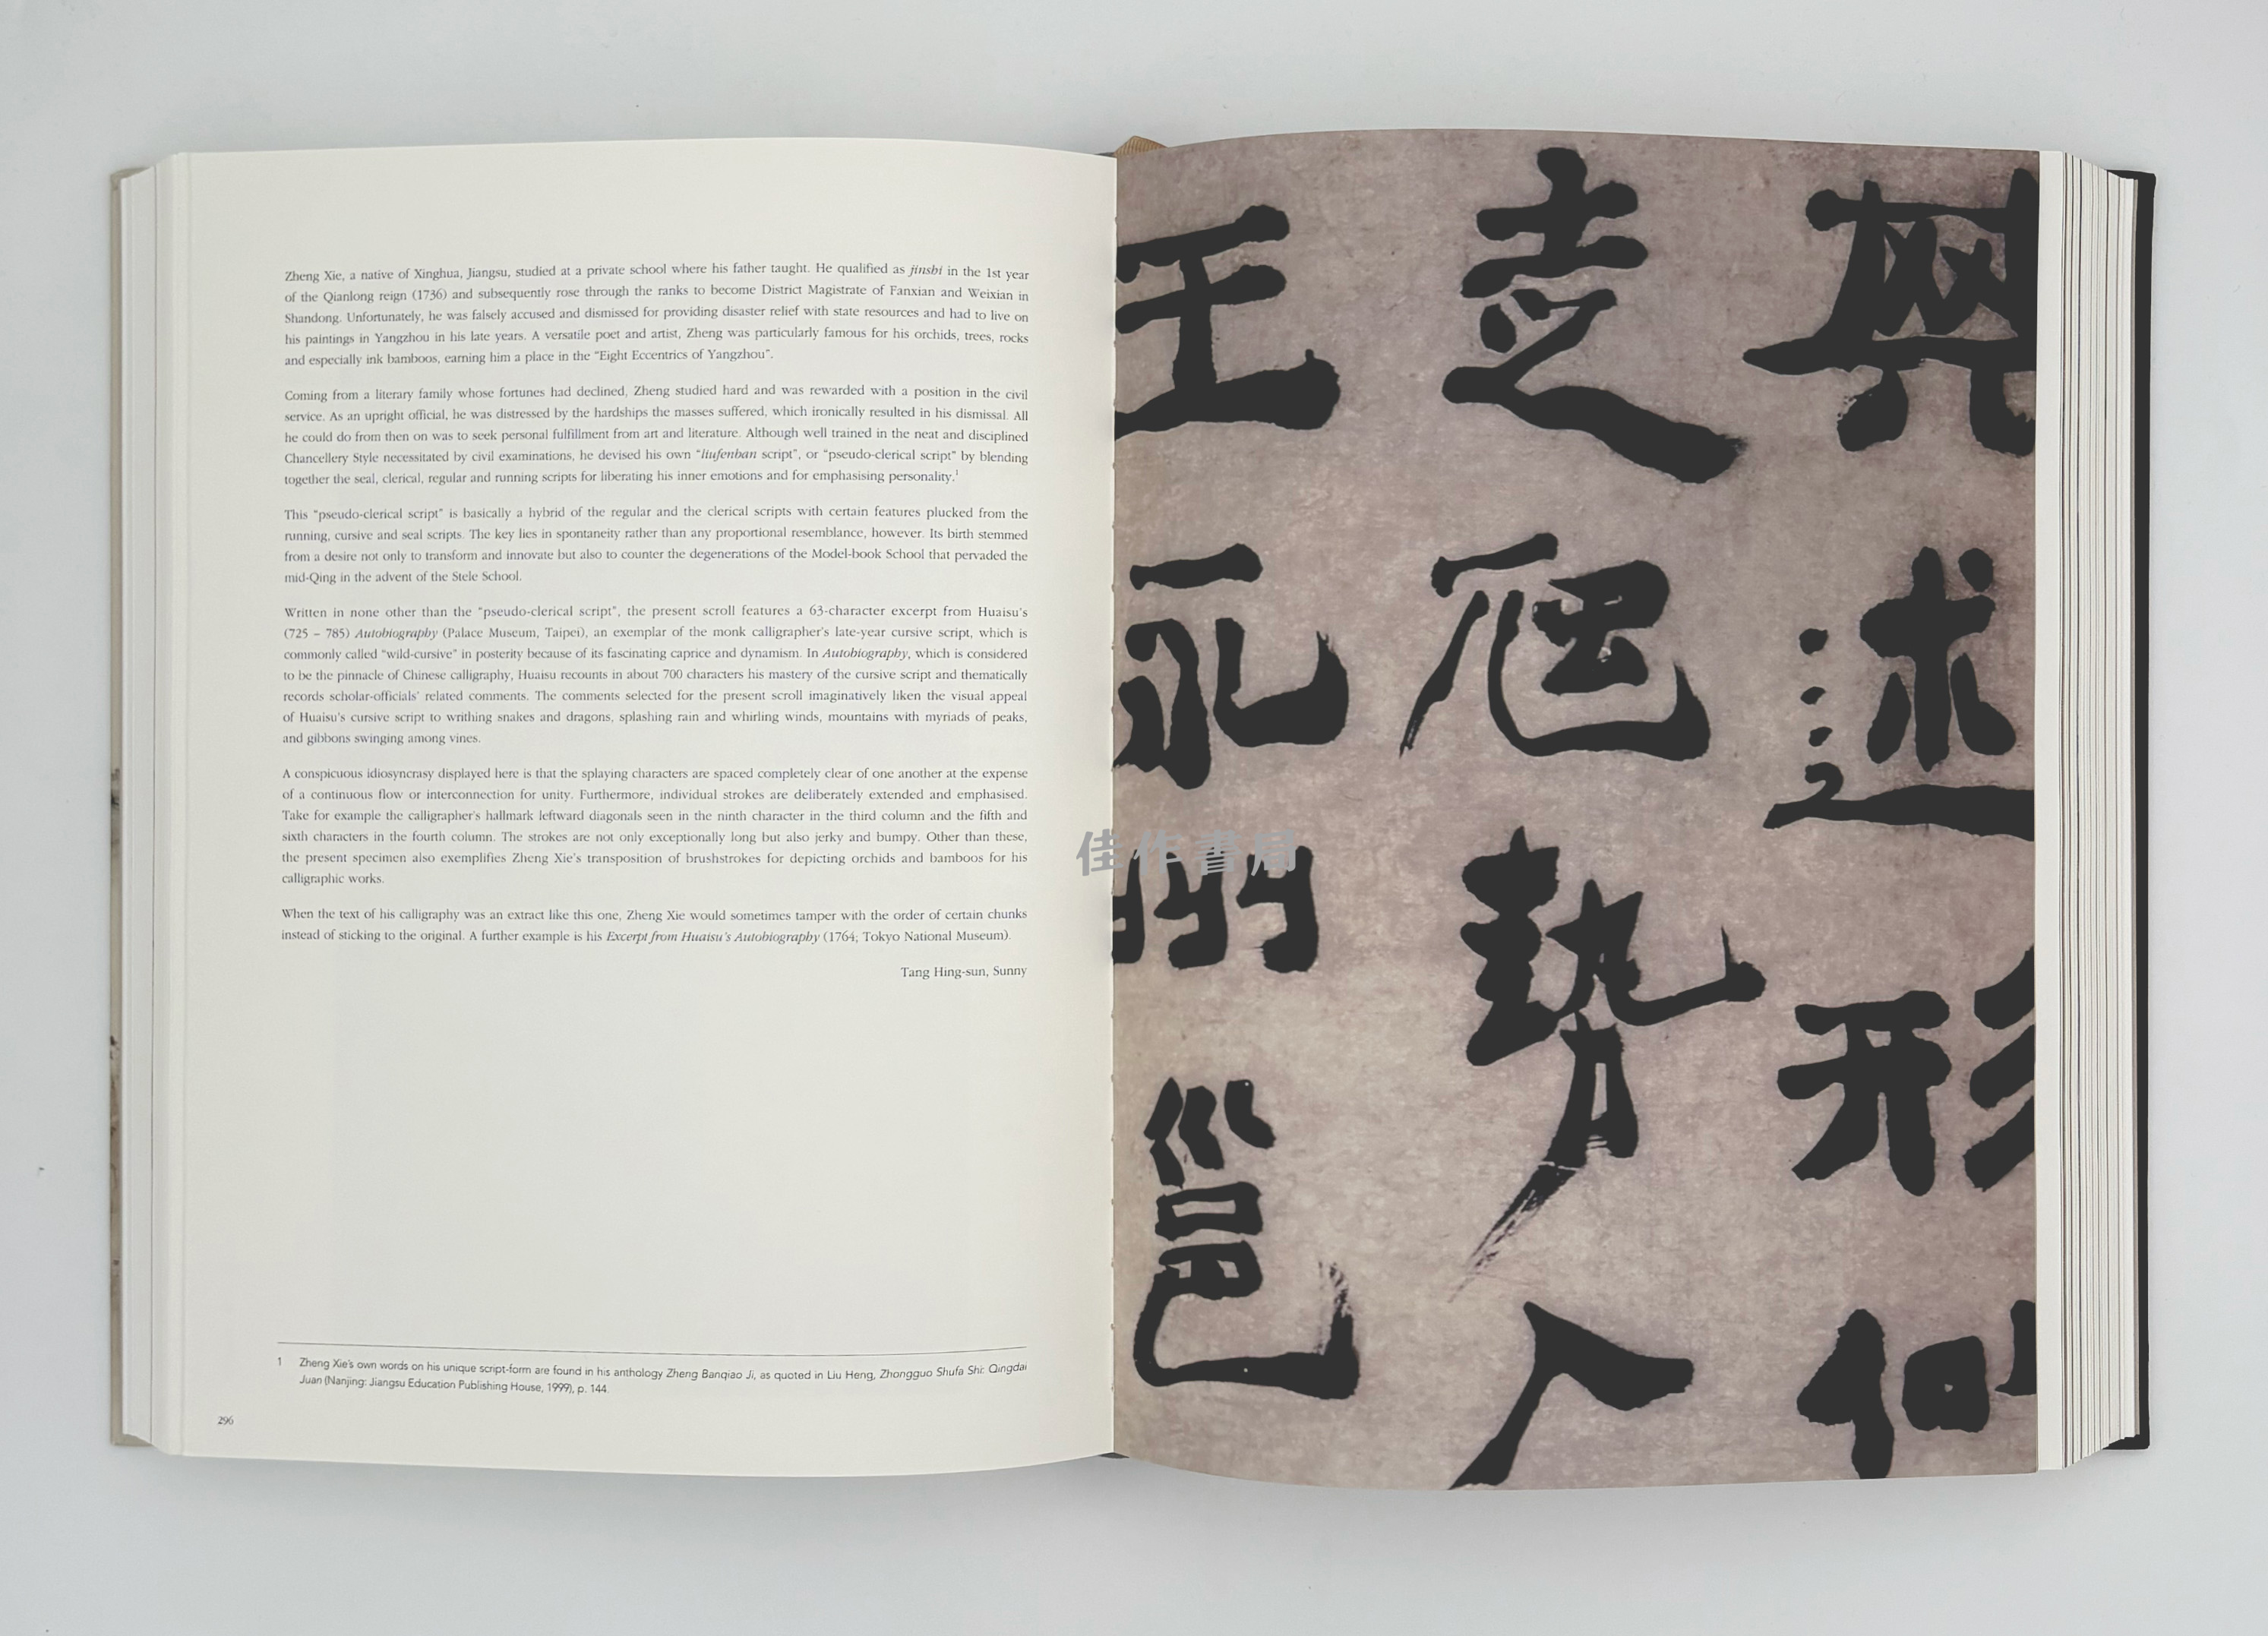 Zheng Xie, a native of Xinghua, Jiangsu, studied at a private school where his father taught. He qualified as jinshi in the 1st year
of the Qianlong reign (1736) and subsequently rose through the ranks to become District Magistrate of Fanxian and Weixian in
Shandong. Unfortunately, he was falsely accused and dismissed for providing disaster relief with state resources and had to live on
his paintings in Yangzhou in his late years. A versatile poet and artist, Zheng was particularly famous for his orchids, trees, rocks
and especially ink bamboos, earning him a place in the “Eight Eccentrics of Yangzhou”.
Coming from a literary family whose fortunes had declined, Zheng studied hard and was rewarded with a position in the civil
service. As an upright official, he was distressed by the hardships the masses suffered, which ironically resulted in his dismissal. All
he could do from then on was to seek personal fulfillment from art and literature. Although well trained in the neat and disciplined
Chancellery Style necessitated by civil examinations, he devised his own “liufenban script”, or “pseudo-clerical script” by blending
together the seal, clerical, regular and running scripts for liberating his inner emotions and for emphasising personality.1
This “pseudo-clerical script” is basically a hybrid of the regular and the clerical scripts with certain features plucked from the
running, cursive and seal scripts. The key lies in spontaneity rather than any proportional resemblance, however. Its birth stemmed
from a desire not only to transform and innovate but also to counter the degenerations of the Model-book School that pervaded the
mid-Qing in the advent of the Stele School.
Written in none other than the “pseudo-clerical script”, the present scroll features a 63-character excerpt from Huaisu's
(725 – 785) Autobiography (Palace Museum, Taipei), an exemplar of the monk calligrapher's late-year cursive script, which is
commonly called “wild-cursive” in posterity because of its fascinating caprice and dynamism. In Autobiography, which is considered
to be the pinnacle of Chinese calligraphy, Huaisu recounts in about 700 characters his mastery of the cursive script and thematically
records scholar-officials' related comments. The comments selected for the present scroll imaginatively liken the visual appeal
of Huaisu's cursive script to writhing snakes and dragons, splashing rain and whirling winds, mountains with myriads of peaks,
and gibbons swinging among vines.
A conspicuous idiosyncrasy displayed here is that the splaying characters are spaced completely clear of one another at the expense
of a continuous flow or interconnection for unity. Furthermore, individual strokes are deliberately extended and emphasised.
Take for example the calligrapher's hallmark leftward diagonals seen in the ninth character in the third column and the fifth and
sixth characters in the fourth column. The strokes are not only exceptionally long but also jerky and bumpy. Other than these,
the present specimen also exemplifies Zheng Xie's transposition of brushstrokes for depicting orchids and bamboos for his
calligraphic works.
When the text of his calligraphy was an extract like this one, Zheng Xie would sometimes tamper with the order of certain chunks
instead of sticking to the original. A further example is his Excerpt from Huaisu's Autobiography (1764; Tokyo National Museum).
Tang Hing-sun, Sunny
1 Zheng Xie's own words on his unique script-form are found in his anthology Zheng Banqiao Ji, as quoted in Liu Heng, Zhongguo Shufa Shi: Qingdai
Juan (Nanjing: Jiangsu Education Publishing House, 1999), p. 144.
296
其述形似
走虺勢入
王永州邕
佳作書局